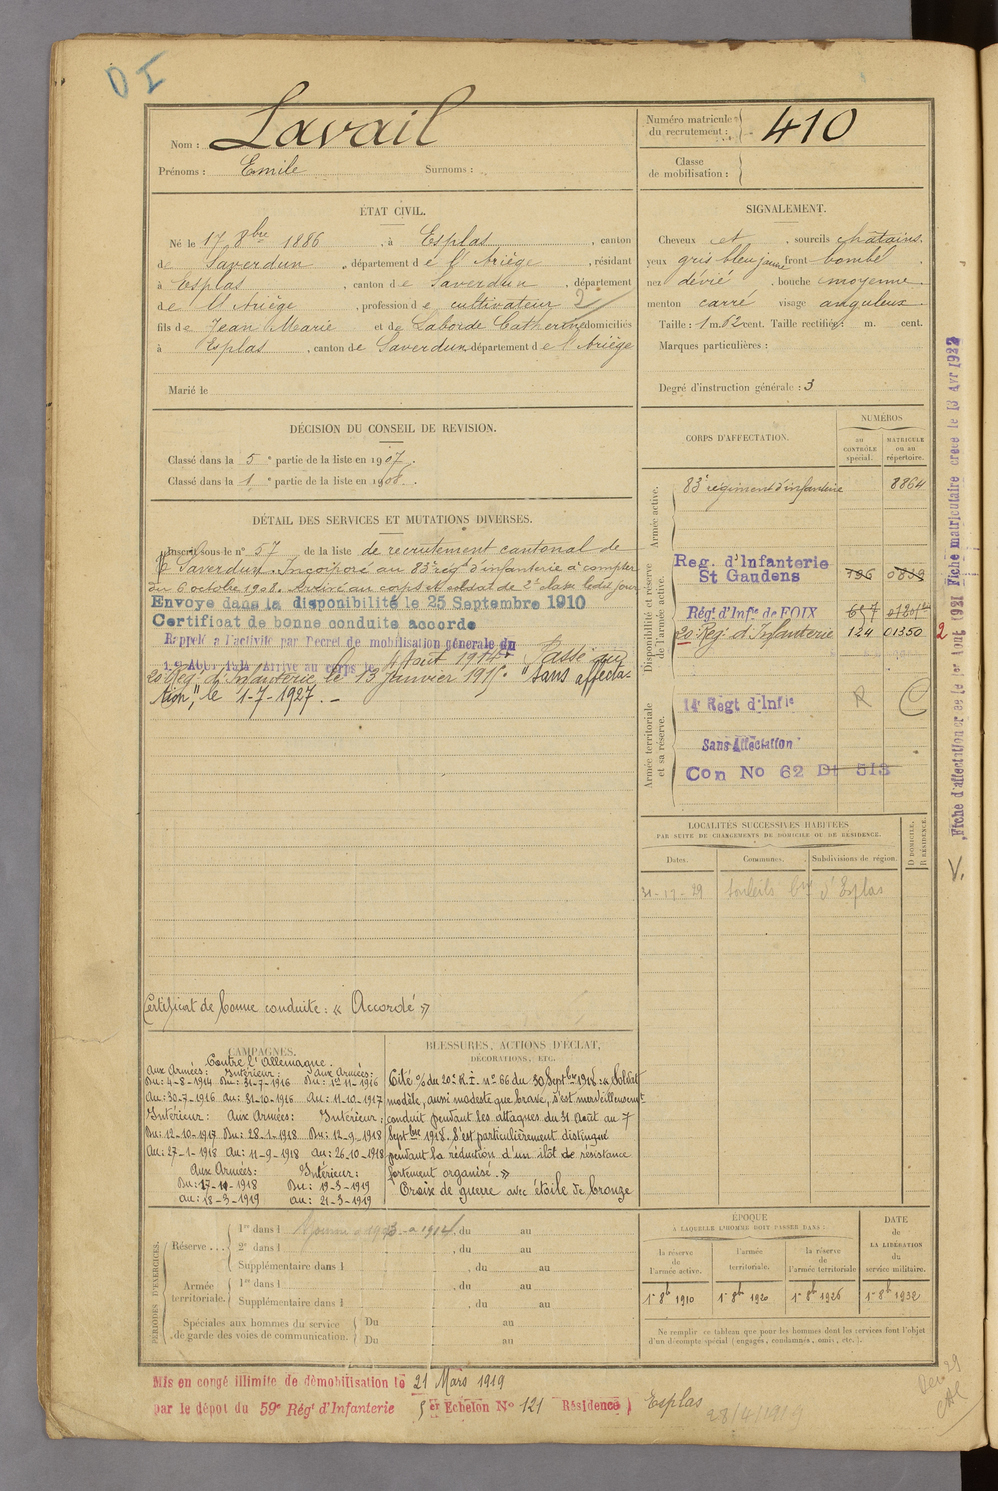 DI
Nom : Lavail
Prénoms : Emile Surnoms :
Numéro matricule du recrutement : 410
Classe de mobilisation :
ÉTAT CIVIL.
Né le 17 8bre 1886, à Esplas, canton
de Saverdun, département de l'Ariège, résidant
à Esplas, canton de Saverdun, département
de l'Ariège, profession de cultivateur 2
fils de Jean Marie et de Laborde Catherine domiciliés
à Esplas, canton de Saverdun département de l'Ariège
Marié le
SIGNALEMENT.
Cheveux et, sourcils chatains.
yeux gris bleu jaune front bombé
nez dévié, bouche moyenne
menton carré visage anguleux
Taille : 1 m. 62 cent. Taille rectifiée : m. cent.
Marques particulières :
Degré d'instruction générale : 3
DÉCISION DU CONSEIL DE REVISION.
Classé dans la 5e partie de la liste en 1907.
Classé dans la 1e partie de la liste en 1908.
DÉTAIL DES SERVICES ET MUTATIONS DIVERSES.
Inscrit sous le n° 57 de la liste de recrutement cantonal de
Saverdun. Incorporé au 83e régt d'infanterie à compter
du 6 octobre 1908. Arrivé au corps et soldat de 2e classe ledit jour
Envoye dans la disponibilité le 25 Septembre 1910
Certificat de bonne conduite accorde
Rappelé a l'activité par Decret de mobilisation générale du
1er Aout 1914 Arrive au corps le 4 Août 1914. Passé au
20 Reg. d'Infanterie le 13 Janvier 1915. "Sans affecta-
tion", le 1-7-1927. -
Certificat de bonne conduite : « Accordé »
CORPS D'AFFECTATION.
NUMÉROS
AU CONTRÔLE spécial.
MATRICULE ou au répertoire.
Armée active.
83e régiment d'infanterie 8864
Disponibilité et réserve de l'armée active.
Reg. d'Infanterie
St Gaudens 796 0839
Régt d'Infie de FOIX
20 Reg. d'Infanterie 124 01350 2
Armée territoriale et sa réserve.
14e Régt d'Infie R C
Sans Affectation
Con No 62 Dt 513
LOCALITÉS SUCCESSIVES HABITÉES
PAR SUITE DE CHANGEMENTS DE DOMICILE OU DE RÉSIDENCE.
Dates. Communes. Subdivisions de région. D DOMICILE, R RÉSIDENCE.
d'Esplas
CAMPAGNES.
Contre l'Allemagne.
Aux Armées : Intérieur : aux Armées :
Du : 4-8-1914 Du : 31-7-1916 Du : 1er 11-1916
Au : 30-7-1916 au : 31-10-1916 au : 11-10-1917
Intérieur : Aux Armées : Intérieur :
Du : 12-10-1917 Du : 28-1-1918 Du : 12-9-1918
Au : 27-1-1918 Au : 11-9-1918 au : 26-10-1918
Aux Armées : Intérieur :
Du : 27-10-1918 Du : 19-3-1919
au : 18-3-1919 au : 21-3-1919
BLESSURES, ACTIONS D'ÉCLAT,
DÉCORATIONS, ETC.
Cité o/ du 20e R.I. n° 66 du 30 Septbre 1918 : « Soldat
modèle, aussi modeste que brave, s'est merveilleusement
conduit pendant les attaques du 31 Août au 7
Septbre 1918. S'est particulièrement distingué
pendant la réduction d'un ilôt de résistance
fortement organisé. »
Croix de guerre avec étoile de bronze
PÉRIODES D'EXERCICES.
Réserve...
1re dans l du au
2e dans l , du au
Supplémentaire dans l , du au
Armée territoriale.
1re dans l , du au
Supplémentaire dans l , du au
Spéciales aux hommes du service de garde des voies de communication.
Du au
Du au
ÉPOQUE
A LAQUELLE L'HOMME DOIT PASSER DANS :
la réserve de l'armée active. l'armée territoriale. la réserve de l'armée territoriale
DATE DE LA LIBÉRATION du service militaire.
1er 8bre 1910 1er 8bre 1920 1er 8bre 1926 1er 8bre 1932
Ne remplir ce tableau que pour les hommes dont les services font l'objet
d'un décompte spécial (engagés, condamnés, omis, etc.).
Mis en congé illimite de démobilisation le 21 Mars 1919
par le dépot du 59e Régt d'Infanterie 5er Echelon No 121 Résidence ) Esplas
28/4/1919
V. Fiche d'affectation creée le 1er Aout 1921 Fiche matriculaire creee le 13 Avr 1922